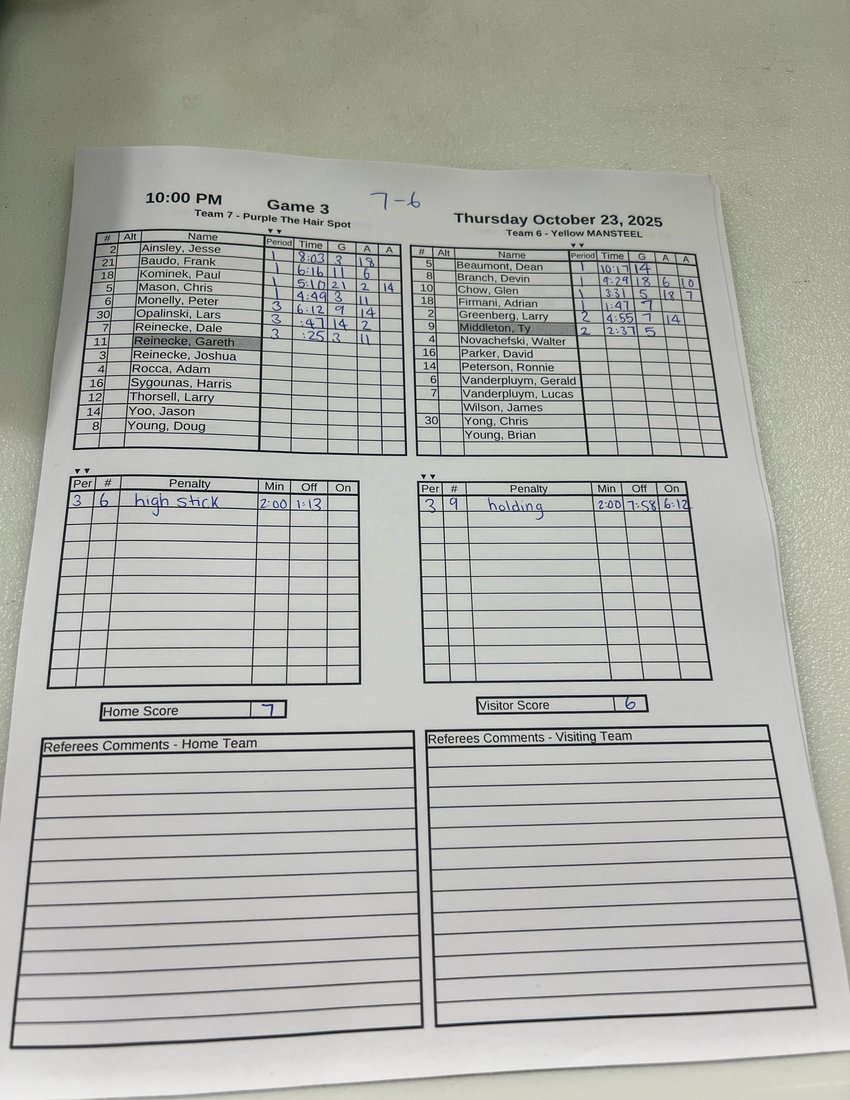 10:00 PM Game 3 7-6 Thursday October 23, 2025
Team 7 - Purple The Hair Spot
Team 6 - Yellow MANSTEEL
# Alt Name Period Time G A A
2 Ainsley, Jesse 1 8:03 3 18
21 Baudo, Frank 1 6:16 11 6
18 Kominek, Paul 1 5:10 21 2 14
5 Mason, Chris 1 4:49 3 11
6 Monelly, Peter 3 6:12 9 14
30 Opalinski, Lars 3 :47 14 2
7 Reinecke, Dale 3 :25 3 11
11 Reinecke, Gareth
3 Reinecke, Joshua
4 Rocca, Adam
16 Sygounas, Harris
12 Thorsell, Larry
14 Yoo, Jason
8 Young, Doug
# Alt Name Period Time G A A
5 Beaumont, Dean 1 10:17 14
8 Branch, Devin 1 9:29 18 6 10
10 Chow, Glen 1 3:31 5 18 7
18 Firmani, Adrian 1 1:47 7
2 Greenberg, Larry 2 4:55 7 14
9 Middleton, Ty 2 2:37 5
4 Novachefski, Walter
16 Parker, David
14 Peterson, Ronnie
6 Vanderpluym, Gerald
7 Vanderpluym, Lucas
Wilson, James
30 Yong, Chris
Young, Brian
Per # Penalty Min Off On
3 6 high stick 2:00 1:13
Per # Penalty Min Off On
3 9 holding 2:00 7:58 6:12
Home Score 7
Visitor Score 6
Referees Comments - Home Team
Referees Comments - Visiting Team